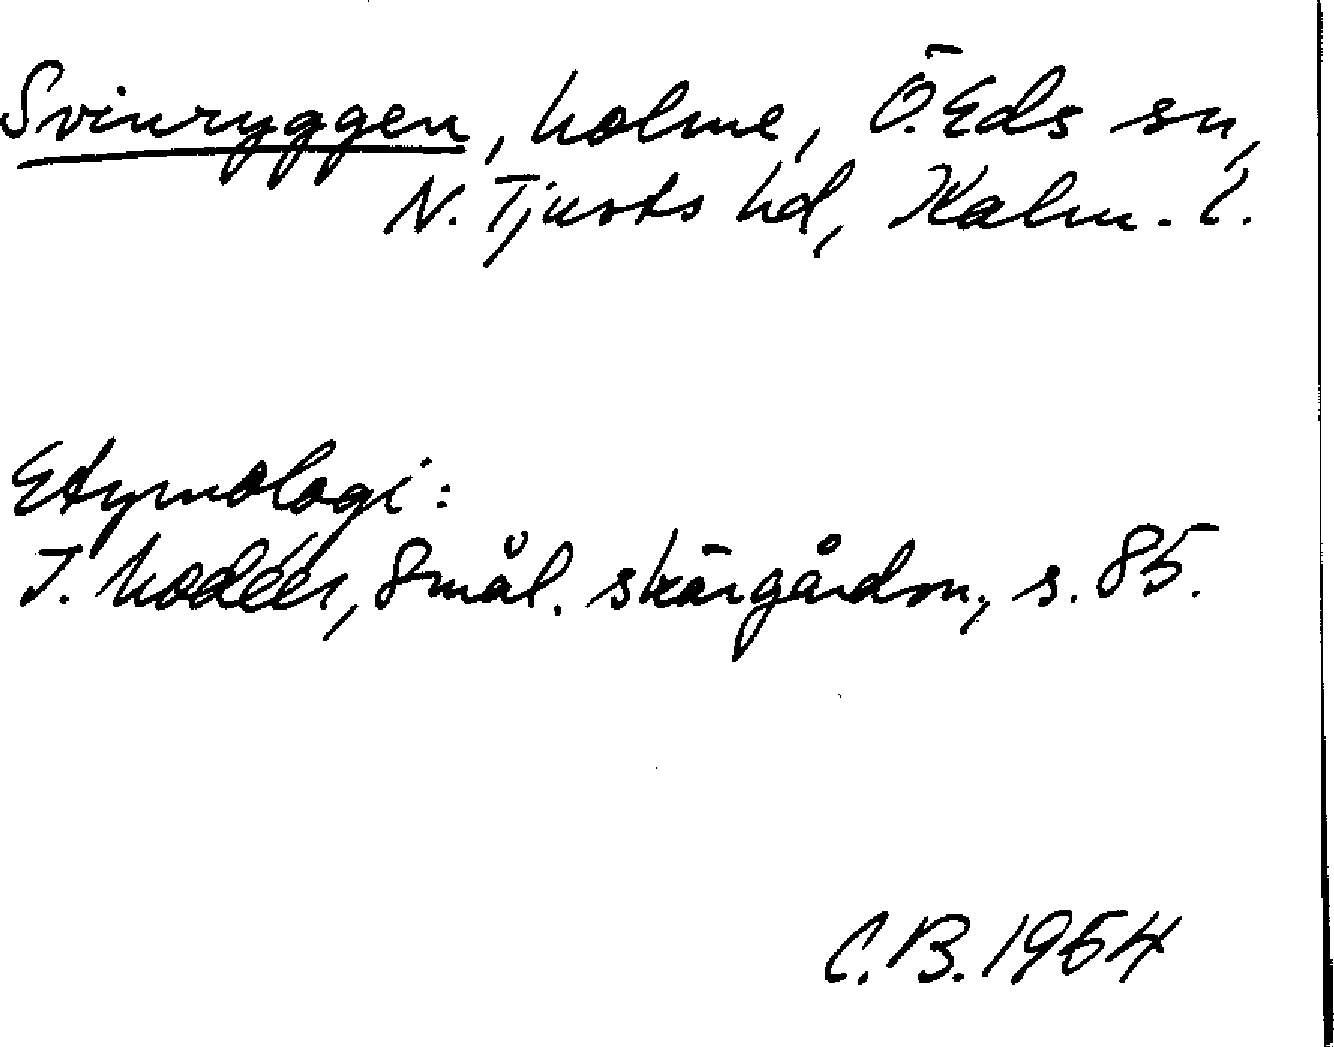 Svinryggen, holme, Ö. Eds sn,
N. Tjusts hd, Kalm. l.
Etymologi:
I. Modéer, Smål. skärgårdsn., s. 85.
C.B. 1964